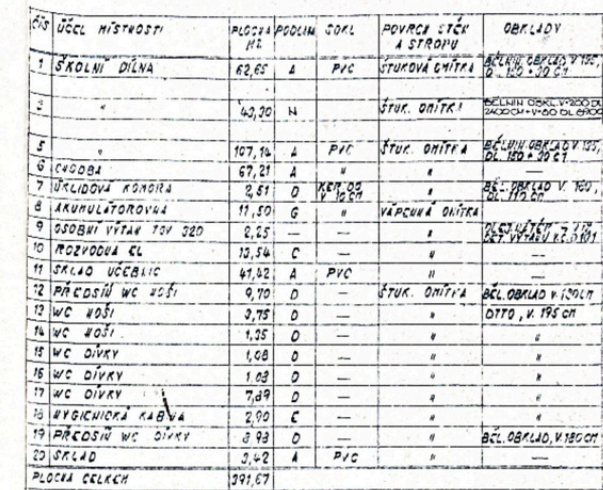 ČÍS ÚČEL MÍSTNOSTI PLOCHA M2 PODLAH SOKL POVRCH STĚN A STROPU OBKLADY
1 ŠKOLNÍ DÍLNA 62,65 A PVC ŠTUKOVÁ OMÍTKA BĚLNIN OBKLAD V 195, DL. 150 + 90 CM
" 43,30 N ŠTUK. OMÍTKA
5 " 107,14 A PVC ŠTUK. OMÍTKA BĚLNIN. OBKLAD V 195, DL. 150 + 90 CM
6 CHODBA 67,21 A " " —
7 ÚKLIDOVÁ KOMORA 2,51 D KER. V 10 CM " BĚL. OBKLAD V. 160, DL. 110 CM
8 AKUMULÁTOROVNA 11,50 G " VÁPENNÁ OMÍTKA
9 OSOBNÍ VÝTAH TOV 320 2,25 — — "
10 ROZVODNA EL 13,54 C — " —
11 SKLAD UČEBNIC 41,42 A PVC " —
12 PŘEDSÍŇ WC HOŠI 9,70 D — ŠTUK. OMÍTKA BĚL. OBKLAD V 180CM
13 WC HOŠI 3,75 D — " DTTO, V. 195 CM
14 WC HOŠI 1,35 D — " "
15 WC DÍVKY 1,08 D — " "
16 WC DÍVKY 1,08 D — " "
17 WC DÍVKY 7,89 D — " "
18 HYGIENICKÁ KABINA 2,90 C — " "
19 PŘEDSÍŇ WC DÍVKY 8,98 D — " BĚL. OBKLAD, V. 180CM
20 SKLAD 3,42 A PVC " —
PLOCHA CELKEM 391,67